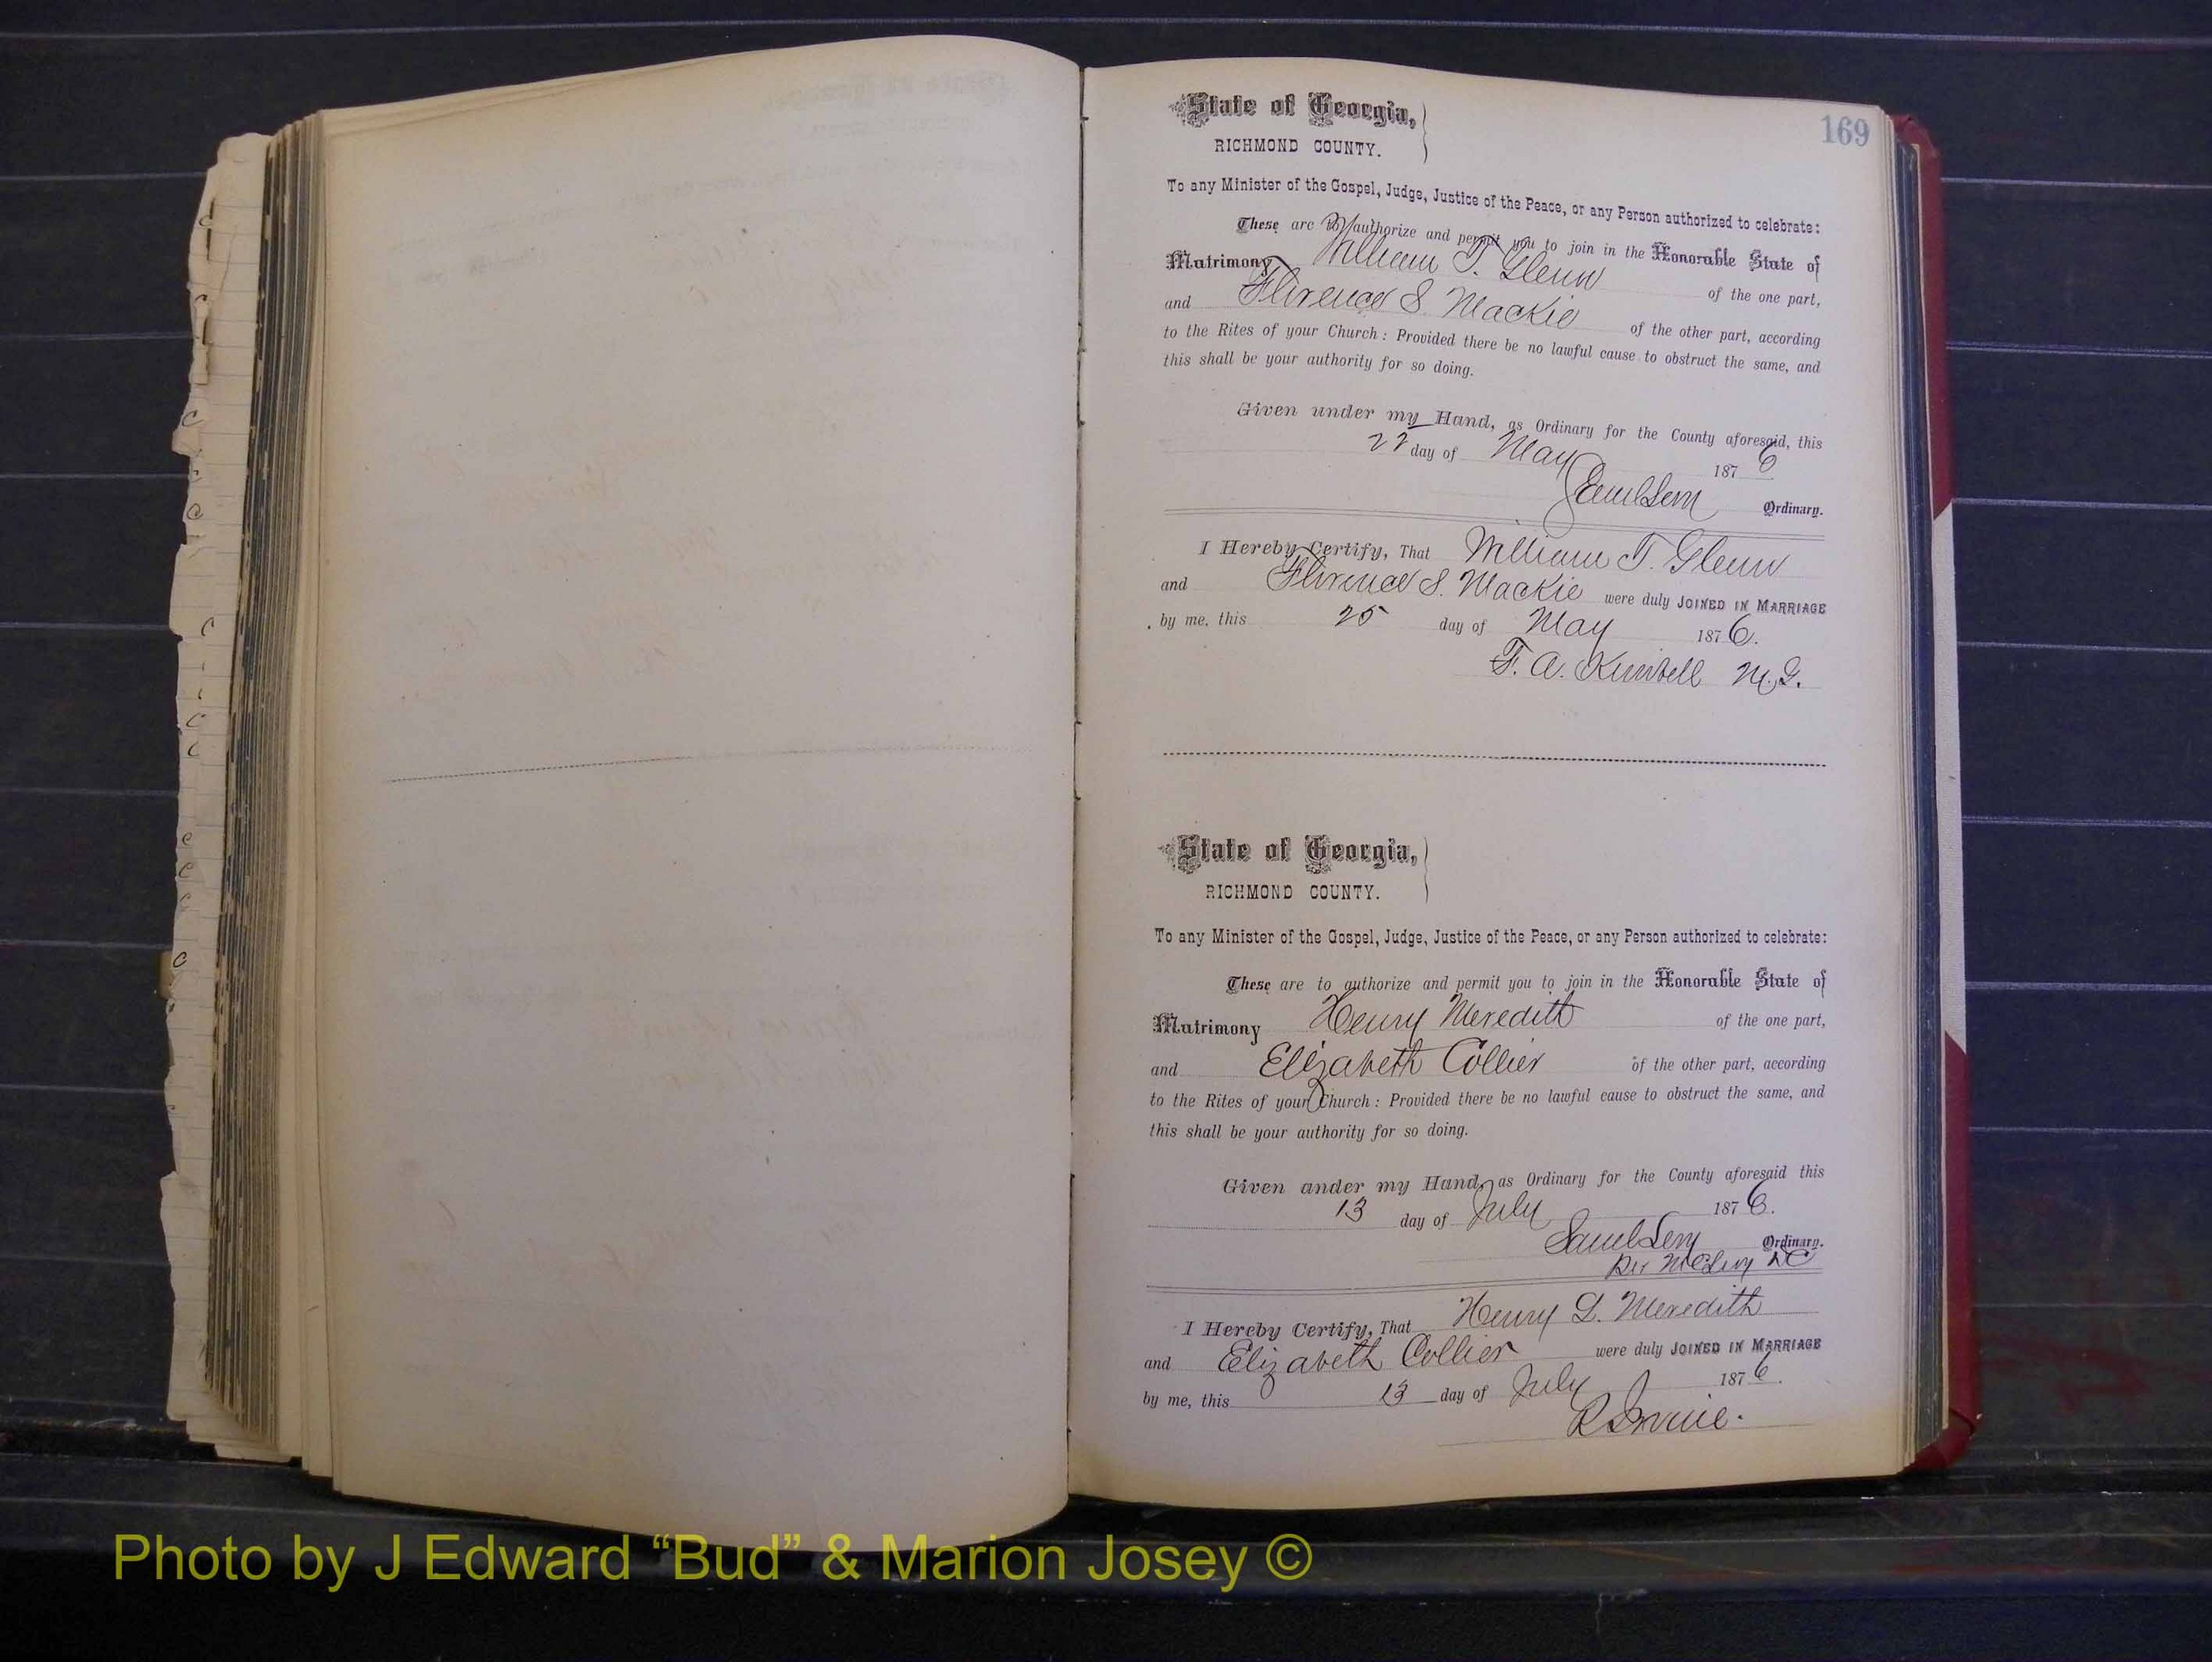 169
State of Georgia,
RICHMOND COUNTY.
To any Minister of the Gospel, Judge, Justice of the Peace, or any Person authorized to celebrate:
These are to authorize and permit you to join in the Honorable State of
Matrimony William T. Glenn of the one part,
and Florence S. Mackie of the other part, according
to the Rites of your Church: Provided there be no lawful cause to obstruct the same, and
this shall be your authority for so doing.
Given under my Hand, as Ordinary for the County aforesaid, this
22 day of May 1876
Saml Levy Ordinary.
I Hereby Certify, That William T. Glenn
and Florence S. Mackie were duly JOINED IN MARRIAGE
by me, this 25 day of May 1876.
F. A. Kimbell M.G.
State of Georgia,
RICHMOND COUNTY.
To any Minister of the Gospel, Judge, Justice of the Peace, or any Person authorized to celebrate:
These are to authorize and permit you to join in the Honorable State of
Matrimony Henry Meredith of the one part,
and Elizabeth Collier of the other part, according
to the Rites of your Church: Provided there be no lawful cause to obstruct the same, and
this shall be your authority for so doing.
Given under my Hand, as Ordinary for the County aforesaid this
13 day of July 1876.
Saml Levy Ordinary.
Per Levy DC
I Hereby Certify, That Henry L. Meredith
and Elizabeth Collier were duly JOINED IN MARRIAGE
by me, this 13 day of July 1876.
R Irvine.
Photo by J Edward “Bud” & Marion Josey ©